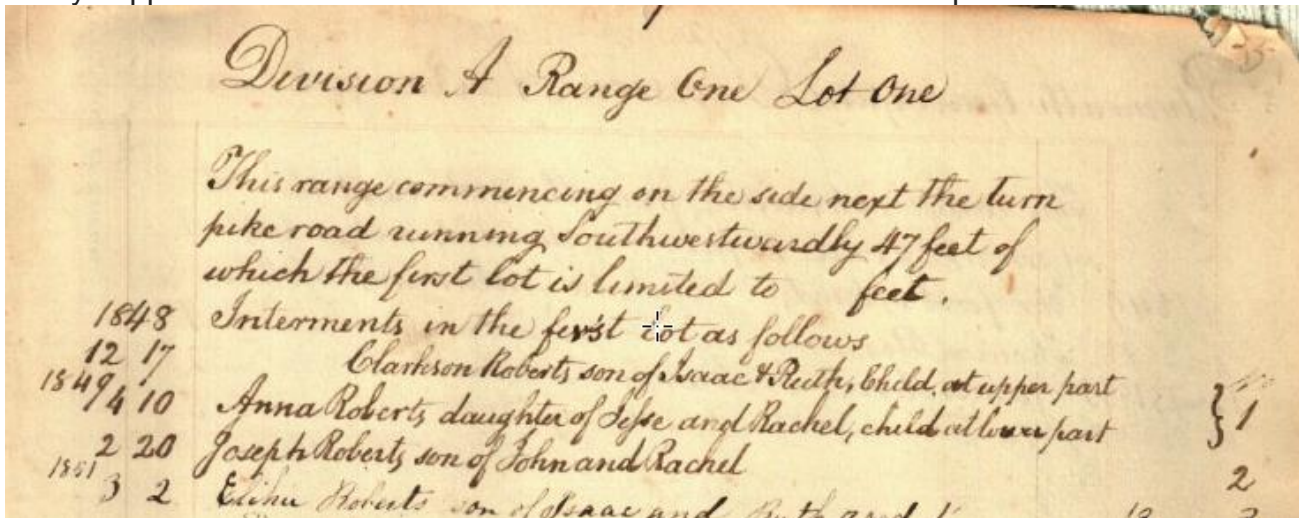 Division A Range One Lot One
This range commencing on the side next the turn
pike road running Southwestwardly 47 feet of
which the first lot is limited to feet.
1848 Interments in the first Lot as follows
12 17 Clarkson Roberts son of Isaac & Ruth, Child, at upper part
1849/4 10 Anna Roberts daughter of Jesse and Rachel, child at lower part } 1
2 20 Joseph Roberts son of John and Rachel 2
1851
3 2 Elihu Roberts son of Isaac and Ruth aged